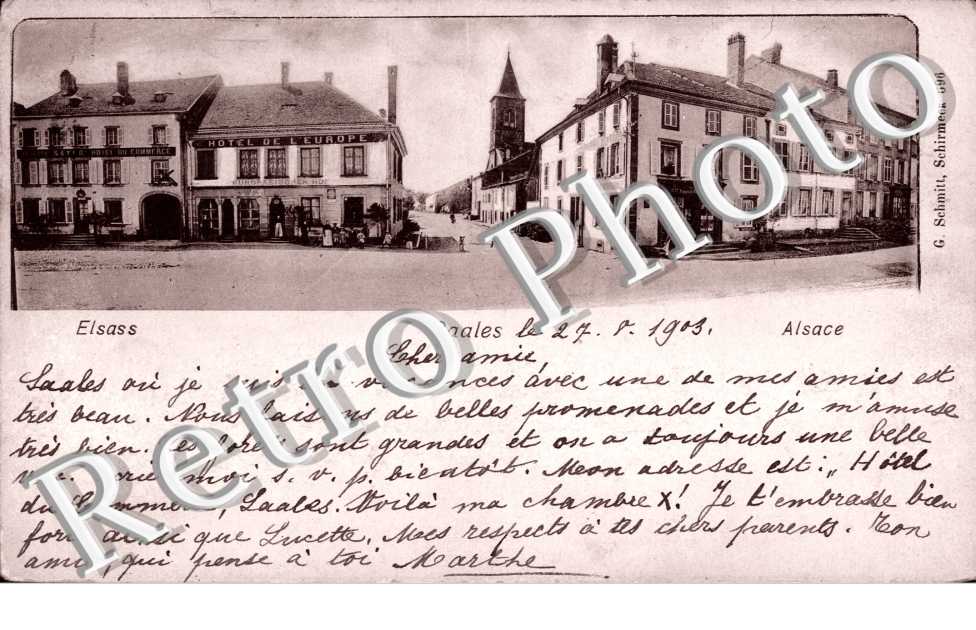 HÔTEL DU COMMERCE
HÔTEL DE L'EUROPE
G. Schmitt, Schirmeck 696
Elsass Saales le 27. 8. 1903. Alsace
Cher amie,
Saales où je suis en vacances avec une de mes amies est
très beau. Nous faisons de belles promenades et je m'amuse
très bien. Les forêts sont grandes et on a toujours une belle
vue. moi s. v. p. bientôt. Mon adresse est: „Hôtel
du Commerce, Saales. Voilà ma chambre X! Je t'embrasse bien
fort ainsi que Lucette. Mes respects à tes chers parents. Ton
amie, qui pense à toi Marthe
Retro Photo
Retro Photo